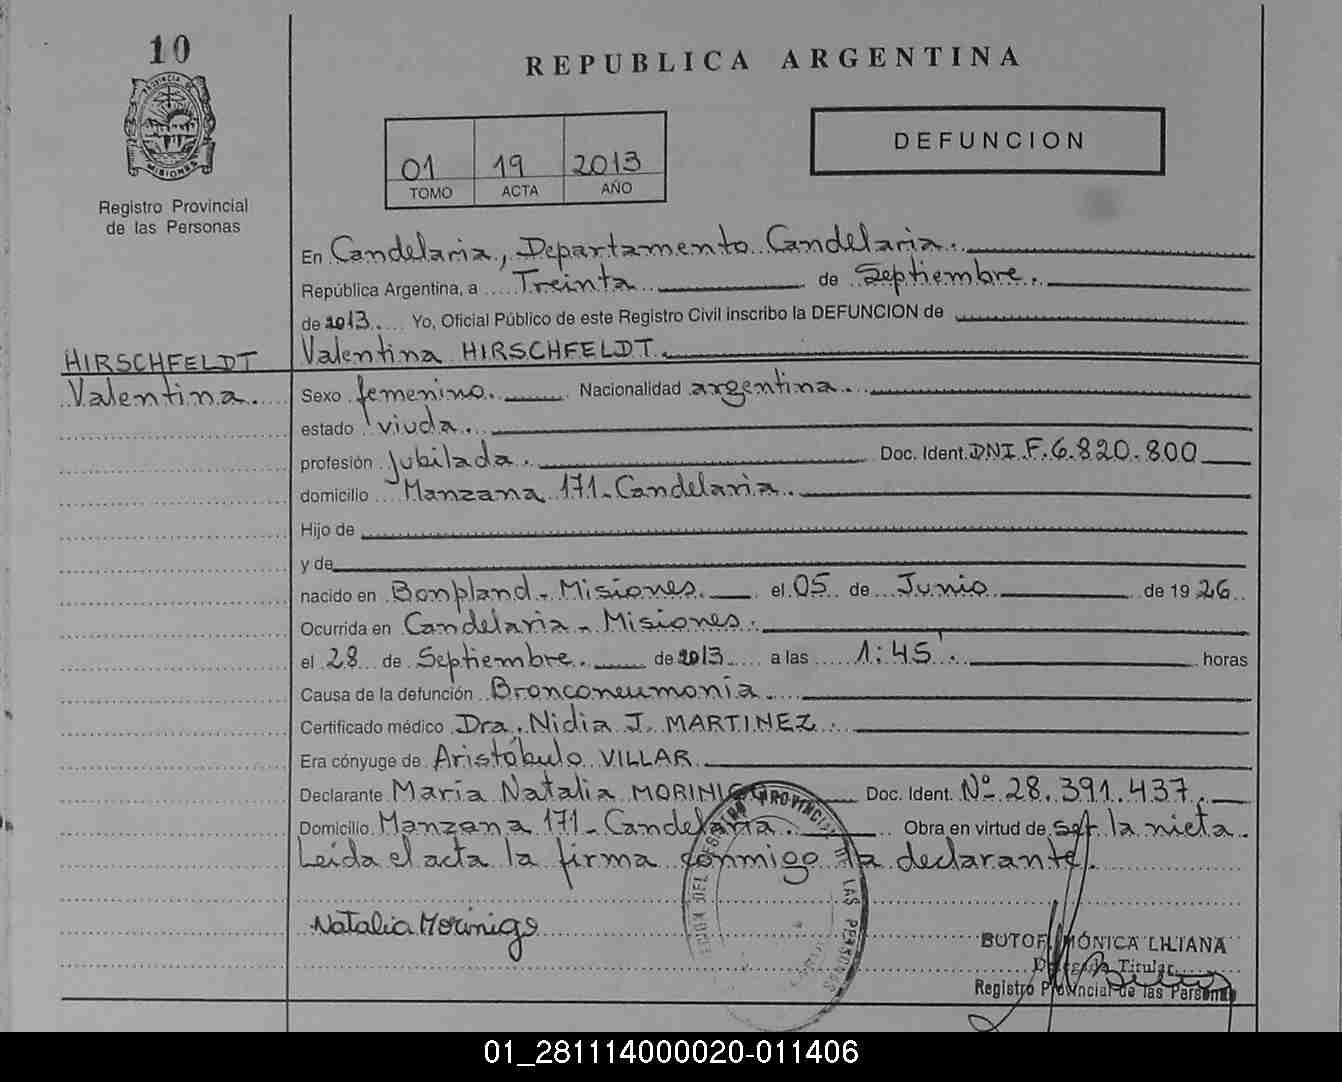 10
PROVINCIA DE
MISIONES
Registro Provincial
de las Personas
REPUBLICA ARGENTINA
01 19 2013
TOMO ACTA AÑO
DEFUNCION
En Candelaria, Departamento Candelaria.
República Argentina, a Treinta de Septiembre.
de 2013. Yo, Oficial Público de este Registro Civil inscribo la DEFUNCION de
HIRSCHFELDT
Valentina.
Valentina HIRSCHFELDT.
Sexo femenino. Nacionalidad argentina.
estado viuda.
profesión Jubilada. Doc. Ident. DNI.F.6.820.800
domicilio Manzana 171-Candelaria.
Hijo de
y de
nacido en Bonpland-Misiones. el 05 de Junio de 1926.
Ocurrida en Candelaria-Misiones.
el 28 de Septiembre. de 2013 a las 1:45'. horas
Causa de la defunción Bronconeumonia.
Certificado médico Dra. Nidia J. MARTINEZ.
Era cónyuge de Aristóbulo VILLAR.
Declarante María Natalia MORINIGO Doc. Ident. Nº 28.391.437.
Domicilio Manzana 171-Candelaria. Obra en virtud de ser la nieta.
Leída el acta la firma conmigo la declarante.
DEL REGISTRO PROVINCIAL DE LAS PERSONAS
Natalia Morinigo
MÓNICA LILIANA
Delegada Titular
Registro Provincial de las Personas
01_281114000020-011406